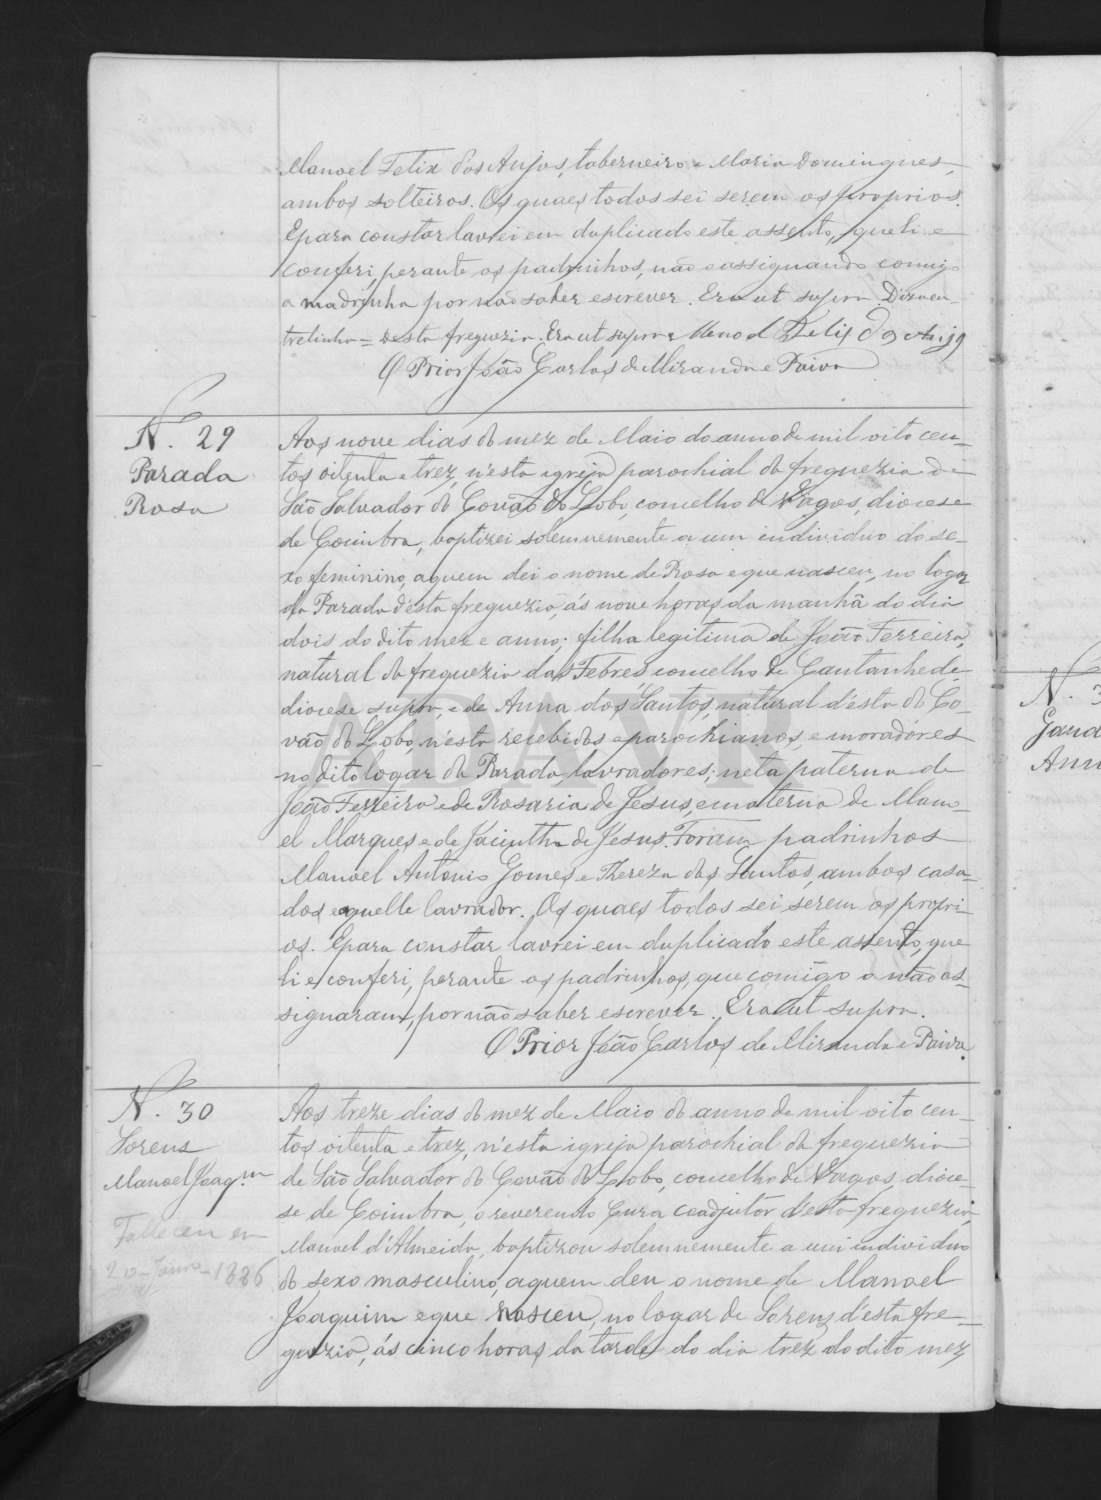 Manoel Felix dos Anjos, taberneiro e Maria Domingues,
ambos solteiros. Os quaes todos sei serem os proprios.
E para constar lavrei em duplicado este assento, que li e
conferi, perante os padrinhos, não assignando comigo
a madrinha por não saber escrever. Era ut supra. Diz a en-
trelinha = desta freguezia. Era ut supra Manoel Felix dos Anjos
O Prior João Carlos de Miranda e Paiva
N. 29
Parada
Rosa
Aos nove dias do mez de Maio do anno de mil oito cen-
tos oitenta e trez, n'esta igreja parochial da freguezia de
São Salvador do Covão do Lobo, concelho de Vagos, diocese
de Coimbra, baptizei solemnemente a um individuo do se-
xo feminino, a quem dei o nome de Rosa e que nasceu, no logar
da Parada d'esta freguezia, ás nove horas da manhã do dia
dois do dito mez e anno; filha legitima de João Ferreira,
natural da freguezia das Febres concelho de Cantanhede
diocese supra, e de Anna dos Santos, natural d'esta do Co-
vão do Lobo, n'esta recebidos e parochianos, e moradores
no dito logar da Parada, lavradores; neta paterna de
João Ferreira e de Rosaria de Jesus, e materna de Mano-
el Marques e de Jacintha de Jesus. Foram padrinhos
Manoel Antonio Gomes e Thereza dos Santos, ambos casa-
dos e aquelle lavrador. Os quaes todos sei serem os propri-
os. E para constar lavrei em duplicado este assento, que
li e conferi, perante os padrinhos, que comigo o não as-
signaram, por não saber escrever. Era ut supra.
O Prior João Carlos de Miranda e Paiva.
N. 30
Lorenz
Manoel Joaq.m
Falleceu em
20-Janro-1886
Aos treze dias do mez de Maio do anno de mil oito cen-
tos oitenta e trez, n'esta igreja parochial da freguezia
de São Salvador do Covão do Lobo, concelho de Vagos, dioce-
se de Coimbra, o reverendo Cura coadjutor d'esta freguezia,
Manoel d'Almeida, baptizou solemnemente a um individuo
do sexo masculino, a quem deu o nome de Manoel
Joaquim e que nasceu, no logar de Lorenz d'esta fre-
guezia, ás cinco horas da tarde do dia trez do dito mez
N. 3
Gand
Ann
ADAVR